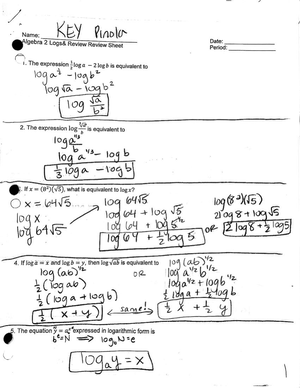 Name: KEY
Date:
Algebra 2 Logs& Review Review Sheet
Period:
1. The expression ½ log a – 2 log b is equivalent to
log a^½ - log b²
log √a - log b²
log √a/b²
2. The expression log ∛a/b is equivalent to
log a^⅓/b
log a^⅓ - log b
⅓ log a - log b
3. If x = (8²)(√5), what is equivalent to log x?
x = 64√5
log x
log 64√5
log 64√5
log 64 + log √5
log 64 + log 5^½
log 64 + ½ log 5
OR
log(8²)(√5)
2 log 8 + log √5
2 log 8 + ½ log 5
4. If log a = x and log b = y, then log √ab is equivalent to
log (ab)^½
½ (log ab)
½ (log a + log b)
½ (x + y)
OR
same!
log (ab)^½
log a^½ b^½
log a^½ + log b^½
½ log a + ½ log b
½ x + ½ y
5. The equation y = aˣ expressed in logarithmic form is
bᵉ = N ⇒ log_b N = e
log_a y = x